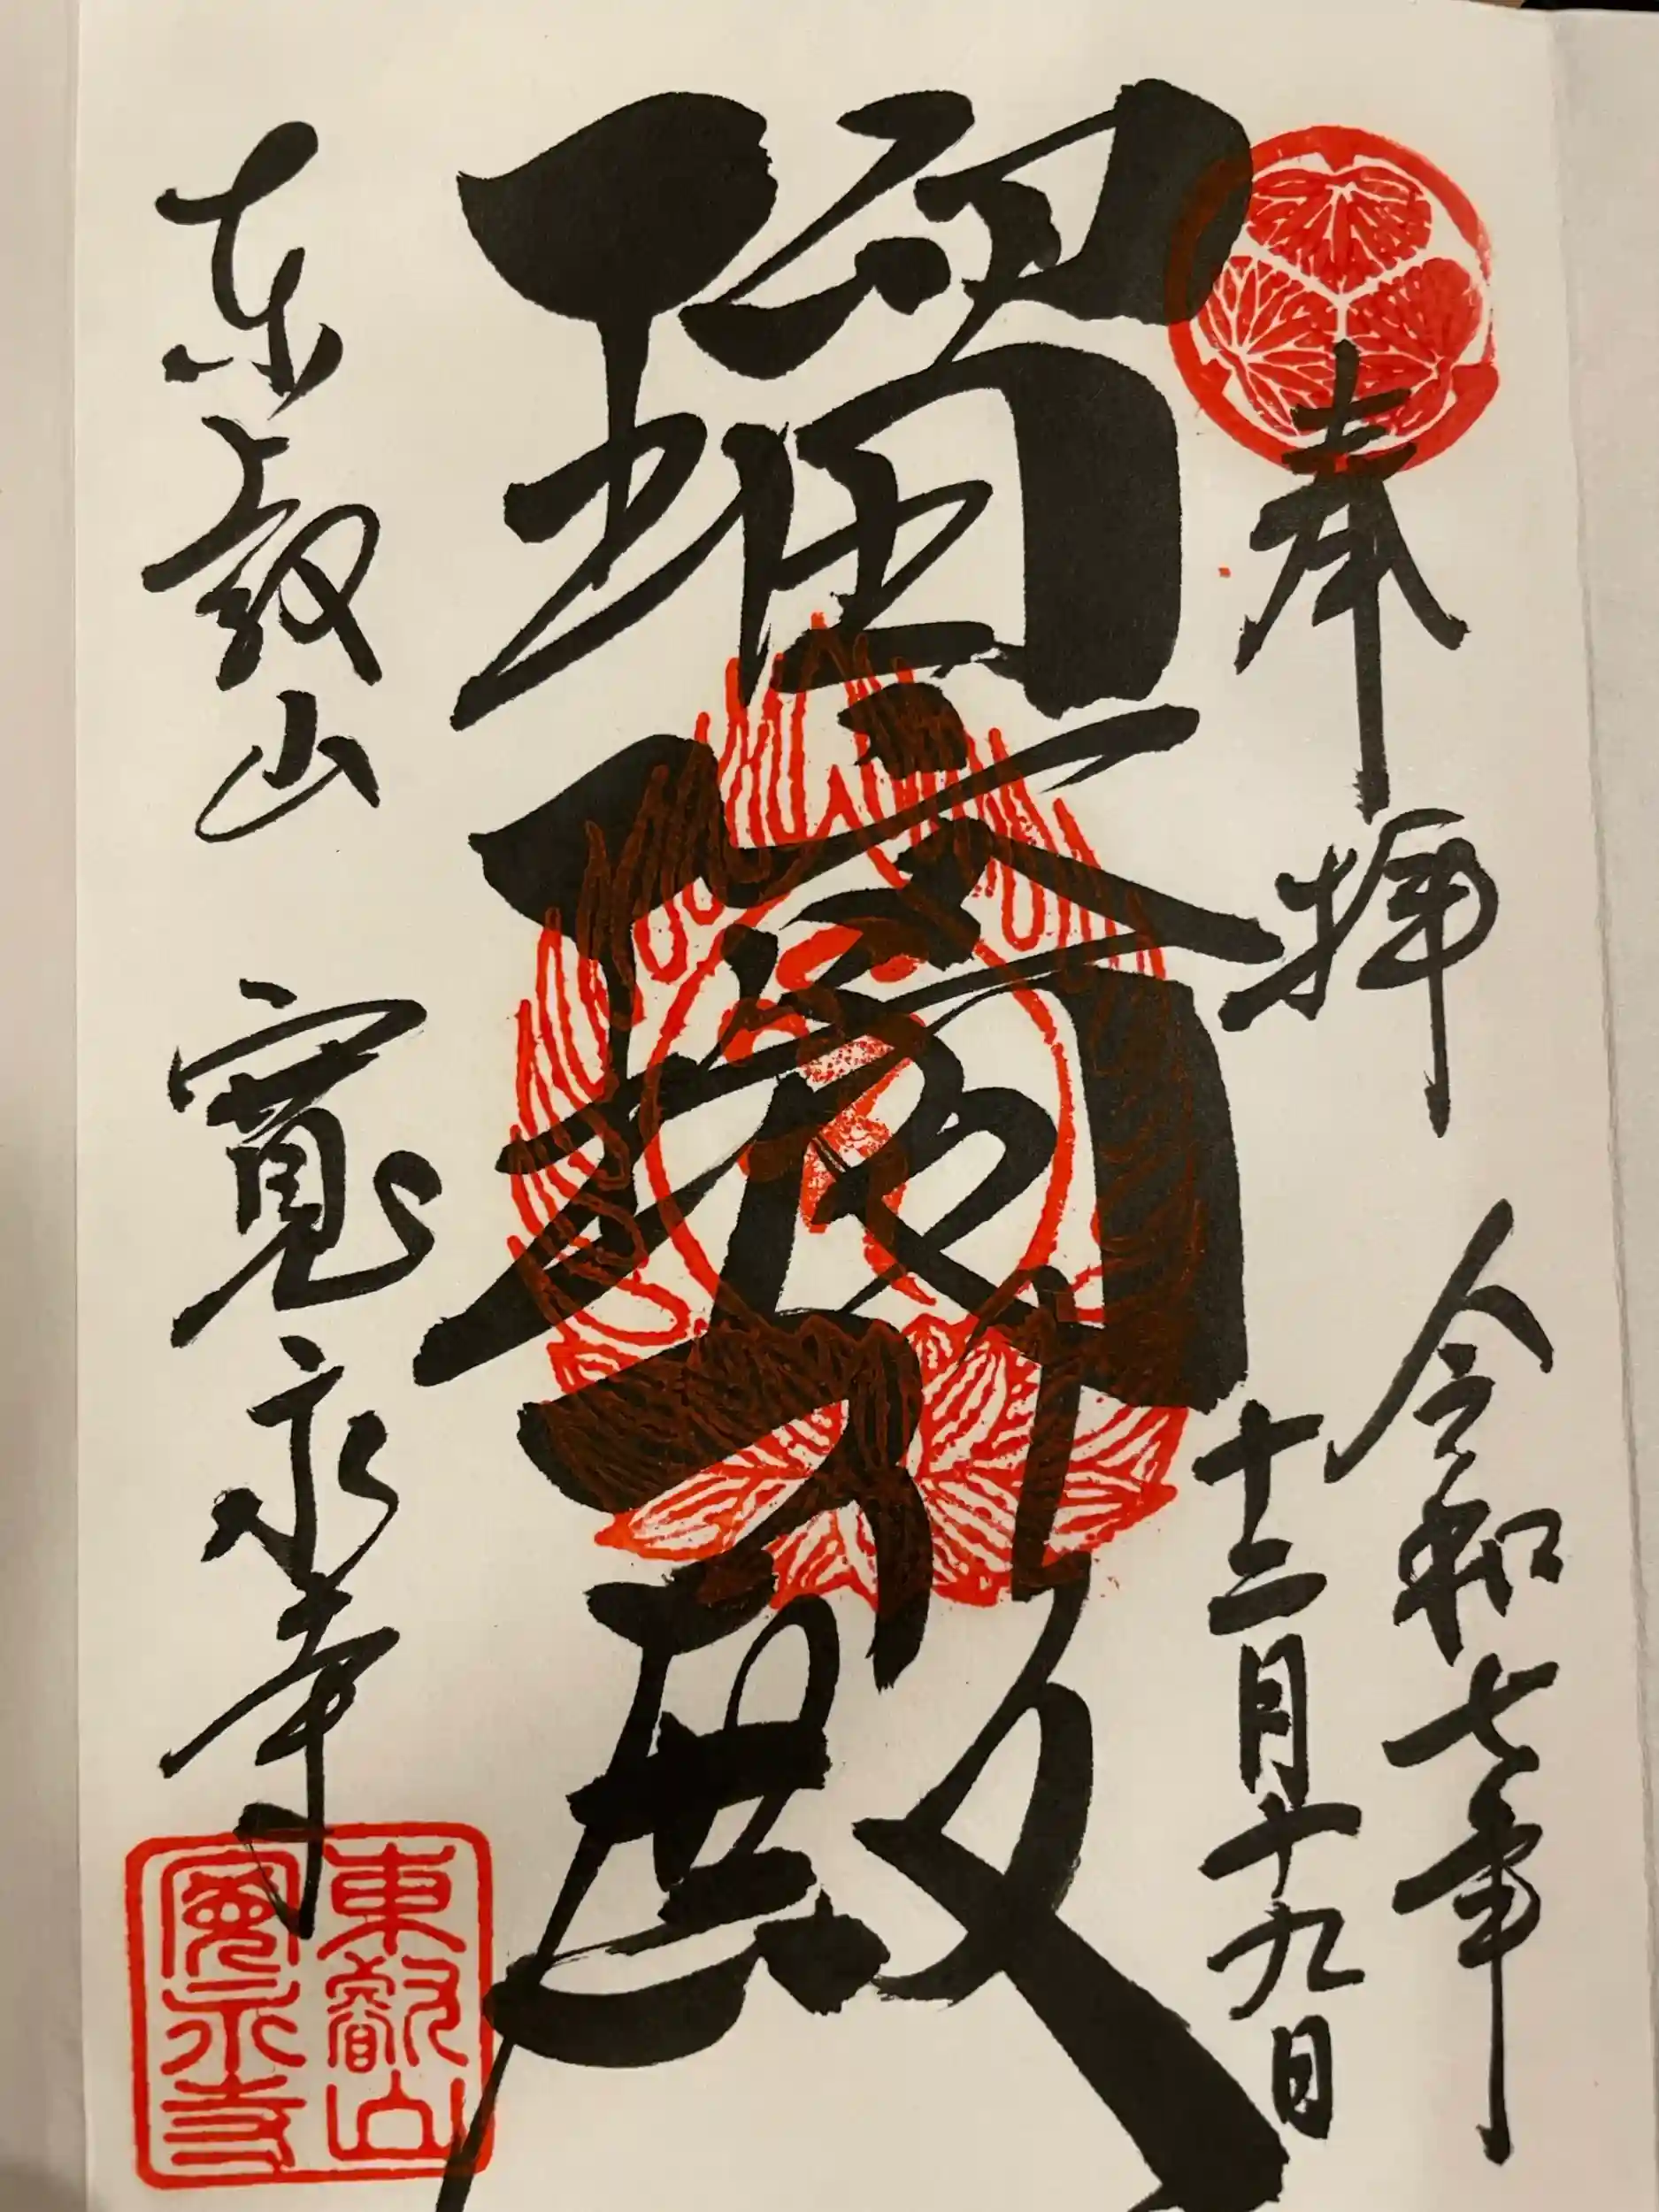 奉拝
令和七年
十二月十九日
瑠璃殿
東叡山 寛永寺
東叡山
寛永寺